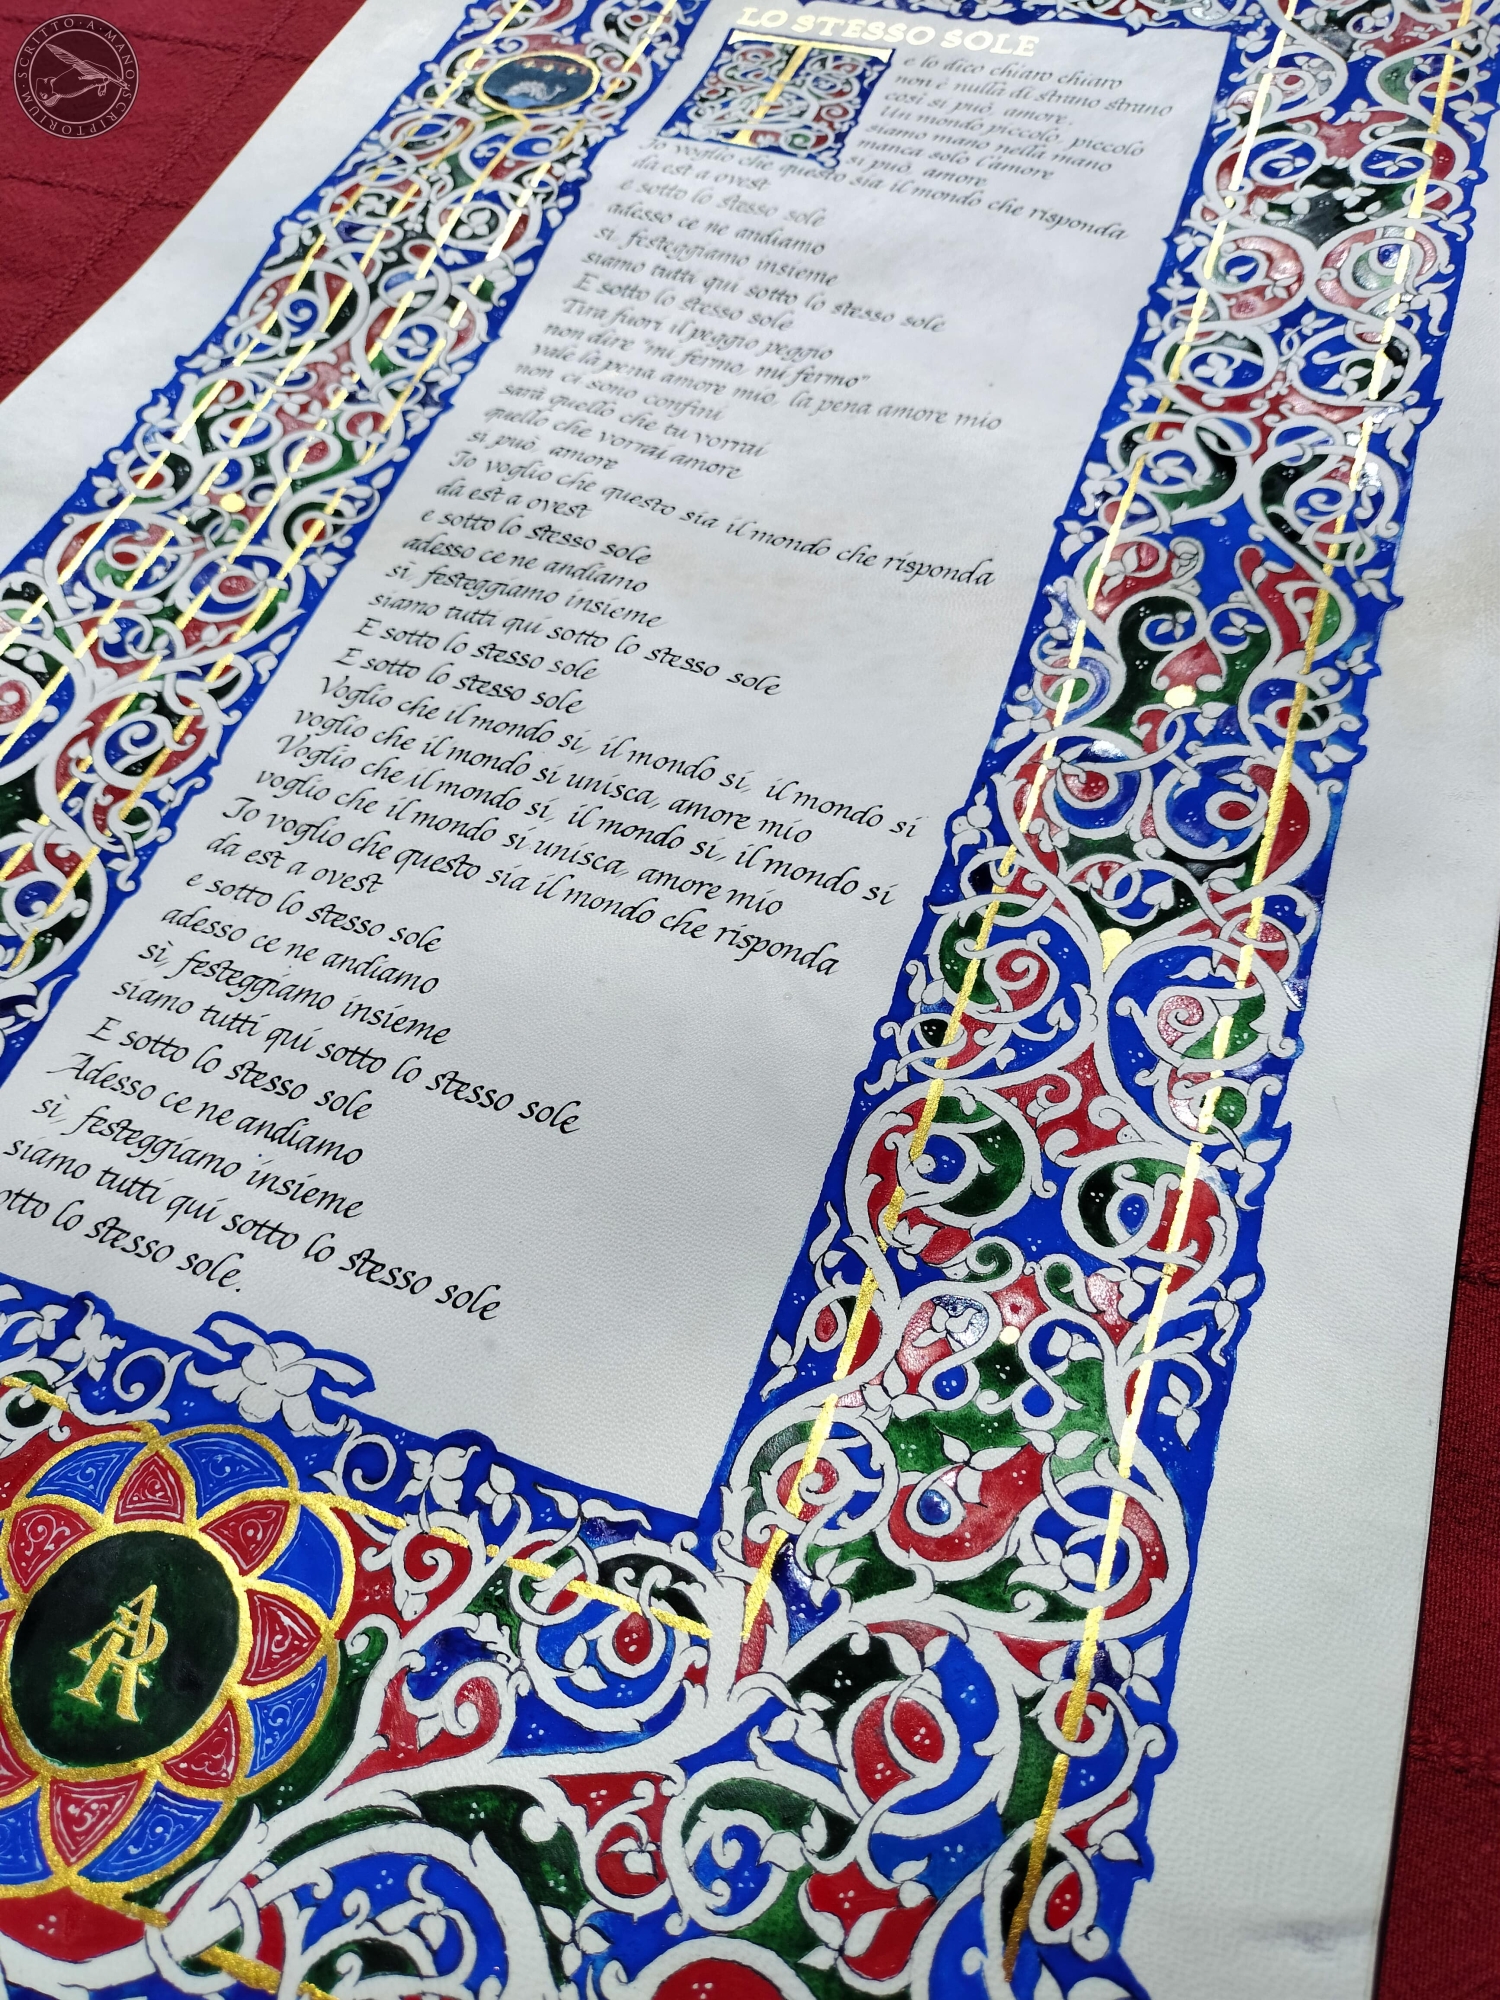 SCRITTO·A·MANO
SCRIPTORIUM·M
LO STESSO SOLE
T
e lo dico chiaro chiaro
non è nulla di strano strano
così si può, amore.
Un mondo piccolo, piccolo
siamo mano nella mano
manca solo l'amore
si può, amore
Io voglio che questo sia il mondo che risponda
da est a ovest
e sotto lo stesso sole
adesso ce ne andiamo
sì, festeggiamo insieme
siamo tutti qui sotto lo stesso sole
E sotto lo stesso sole
Tira fuori il peggio peggio
non dire "mi fermo, mi fermo"
vale la pena amore mio, la pena amore mio
non ci sono confini
sarà quello che tu vorrai
quello che vorrai amore
si può, amore
Io voglio che questo sia il mondo che risponda
da est a ovest
e sotto lo stesso sole
adesso ce ne andiamo
sì, festeggiamo insieme
siamo tutti qui sotto lo stesso sole
E sotto lo stesso sole
E sotto lo stesso sole
Voglio che il mondo si, il mondo si, il mondo si
voglio che il mondo si unisca, amore mio
Voglio che il mondo si, il mondo si, il mondo si
voglio che il mondo si unisca, amore mio
Io voglio che questo sia il mondo che risponda
da est a ovest
e sotto lo stesso sole
adesso ce ne andiamo
sì, festeggiamo insieme
siamo tutti qui sotto lo stesso sole
E sotto lo stesso sole
Adesso ce ne andiamo
sì, festeggiamo insieme
siamo tutti qui sotto lo stesso sole
otto lo stesso sole.